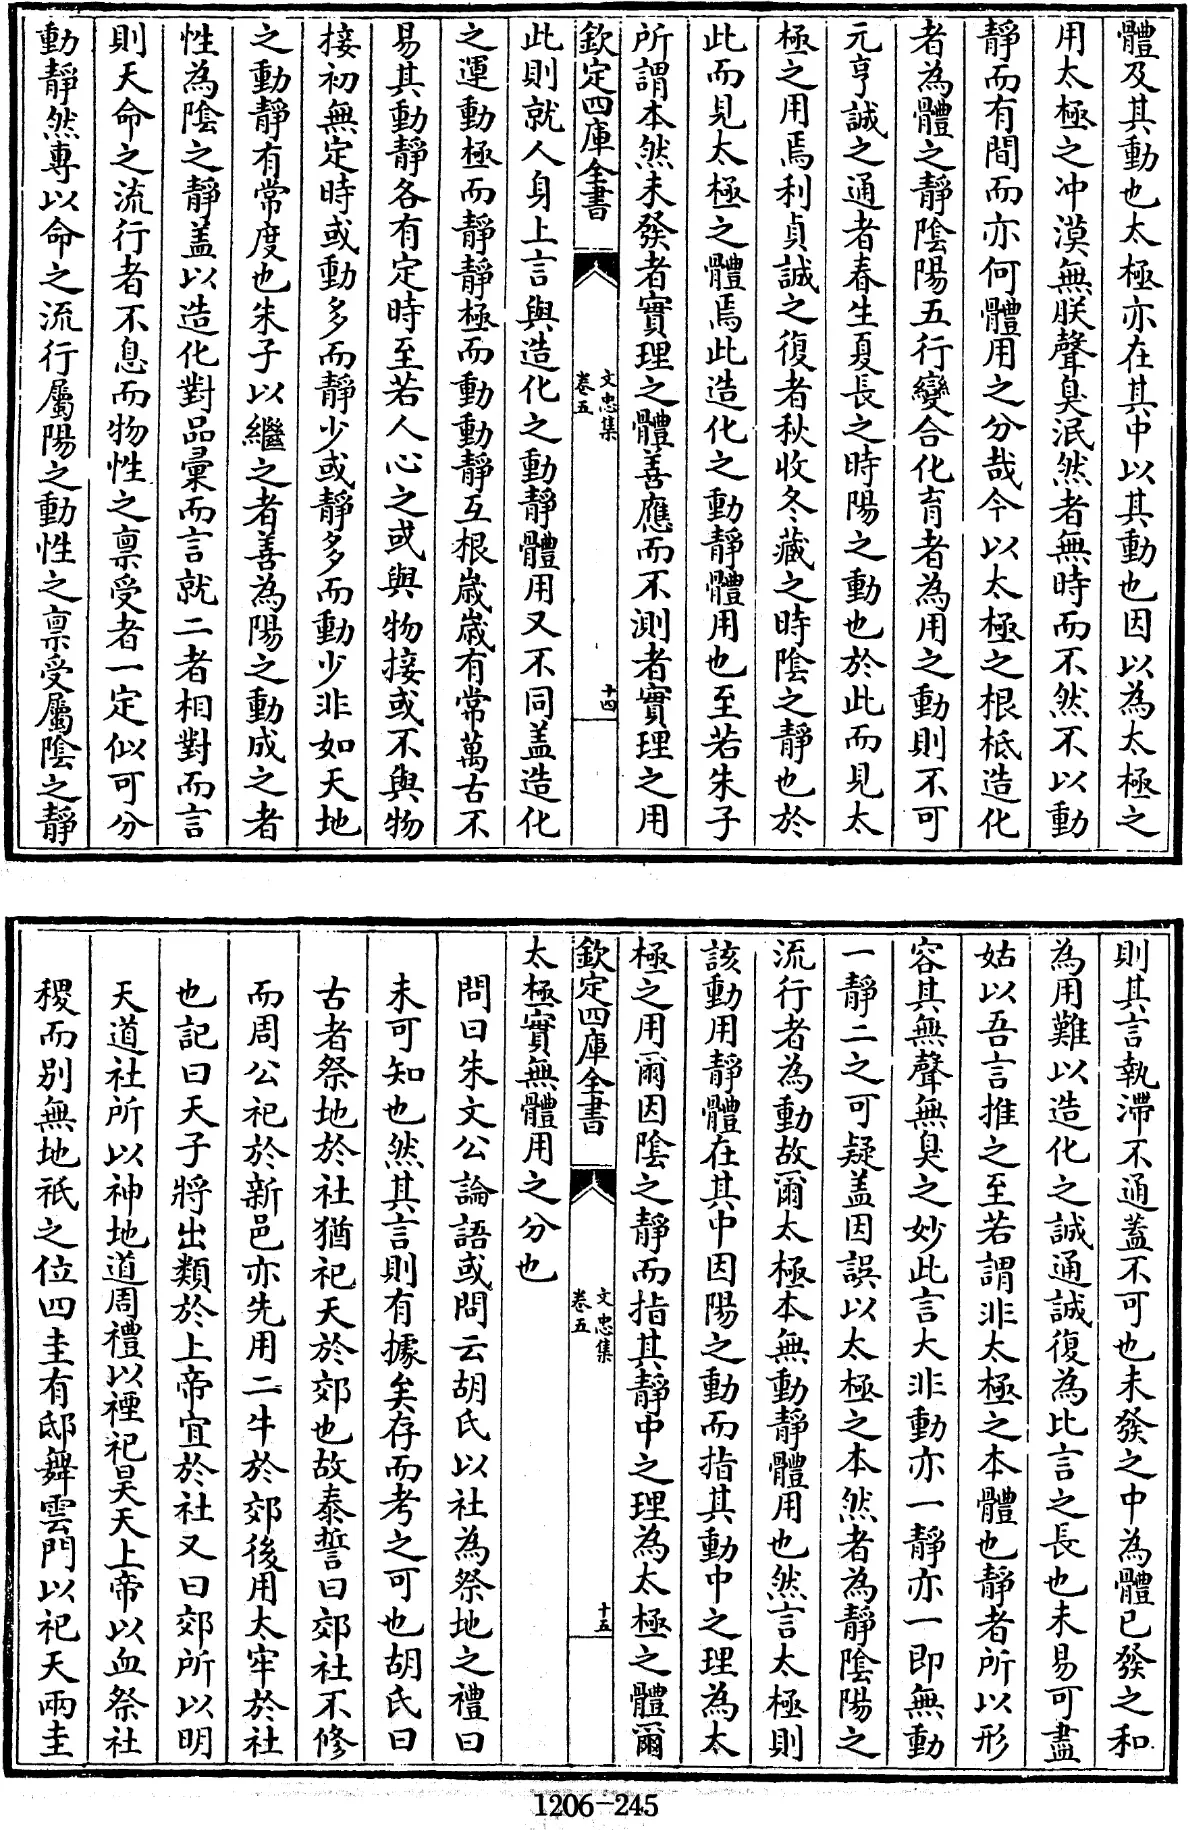 體及其動也太極亦在其中以其動也因以為太極之
用太極之冲漠無朕聲臭泯然者無時而不然不以動
靜而有間而亦何體用之分哉今以太極之根柢造化
者為體之靜陰陽五行變合化育者為用之動則不可
元亨誠之通者春生夏長之時陽之動也於此而見太
極之用焉利貞誠之復者秋收冬藏之時陰之靜也於
此而見太極之體焉此造化之動靜體用也至若朱子
所謂本然未發者實理之體善應而不測者實理之用
欽定四庫全書
文忠集
卷五
十四
此則就人身上言與造化之動靜體用又不同盖造化
之運動極而靜靜極而動動靜互根歲歲有常萬古不
易其動靜各有定時至若人心之或與物接或不與物
接初無定時或動多而靜少或靜多而動少非如天地
之動靜有常度也朱子以繼之者善為陽之動成之者
性為陰之靜盖以造化對品彙而言就二者相對而言
則天命之流行者不息而物性之禀受者一定似可分
動靜然專以命之流行屬陽之動性之禀受屬陰之靜
則其言執滯不通蓋不可也未發之中為體已發之和
為用難以造化之誠通誠復為比言之長也未易可盡
姑以吾言推之至若謂非太極之本體也靜者所以形
容其無聲無臭之妙此言大非動亦一靜亦一即無動
一靜二之可疑盖因誤以太極之本然者為靜陰陽之
流行者為動故爾太極本無動靜體用也然言太極則
該動用靜體在其中因陽之動而指其動中之理為太
極之用爾因陰之靜而指其靜中之理為太極之體爾
欽定四庫全書
文忠集
卷五
十五
太極實無體用之分也
問曰朱文公論語或問云胡氏以社為祭地之禮曰
未可知也然其言則有據矣存而考之可也胡氏曰
古者祭地於社猶祀天於郊也故泰誓曰郊社不修
而周公祀於新邑亦先用二牛於郊後用太牢於社
也記曰天子將出類於上帝宜於社又曰郊所以明
天道社所以神地道周禮以禋祀昊天上帝以血祭社
稷而別無地祇之位四圭有邸舞雲門以祀天兩圭
1206-245